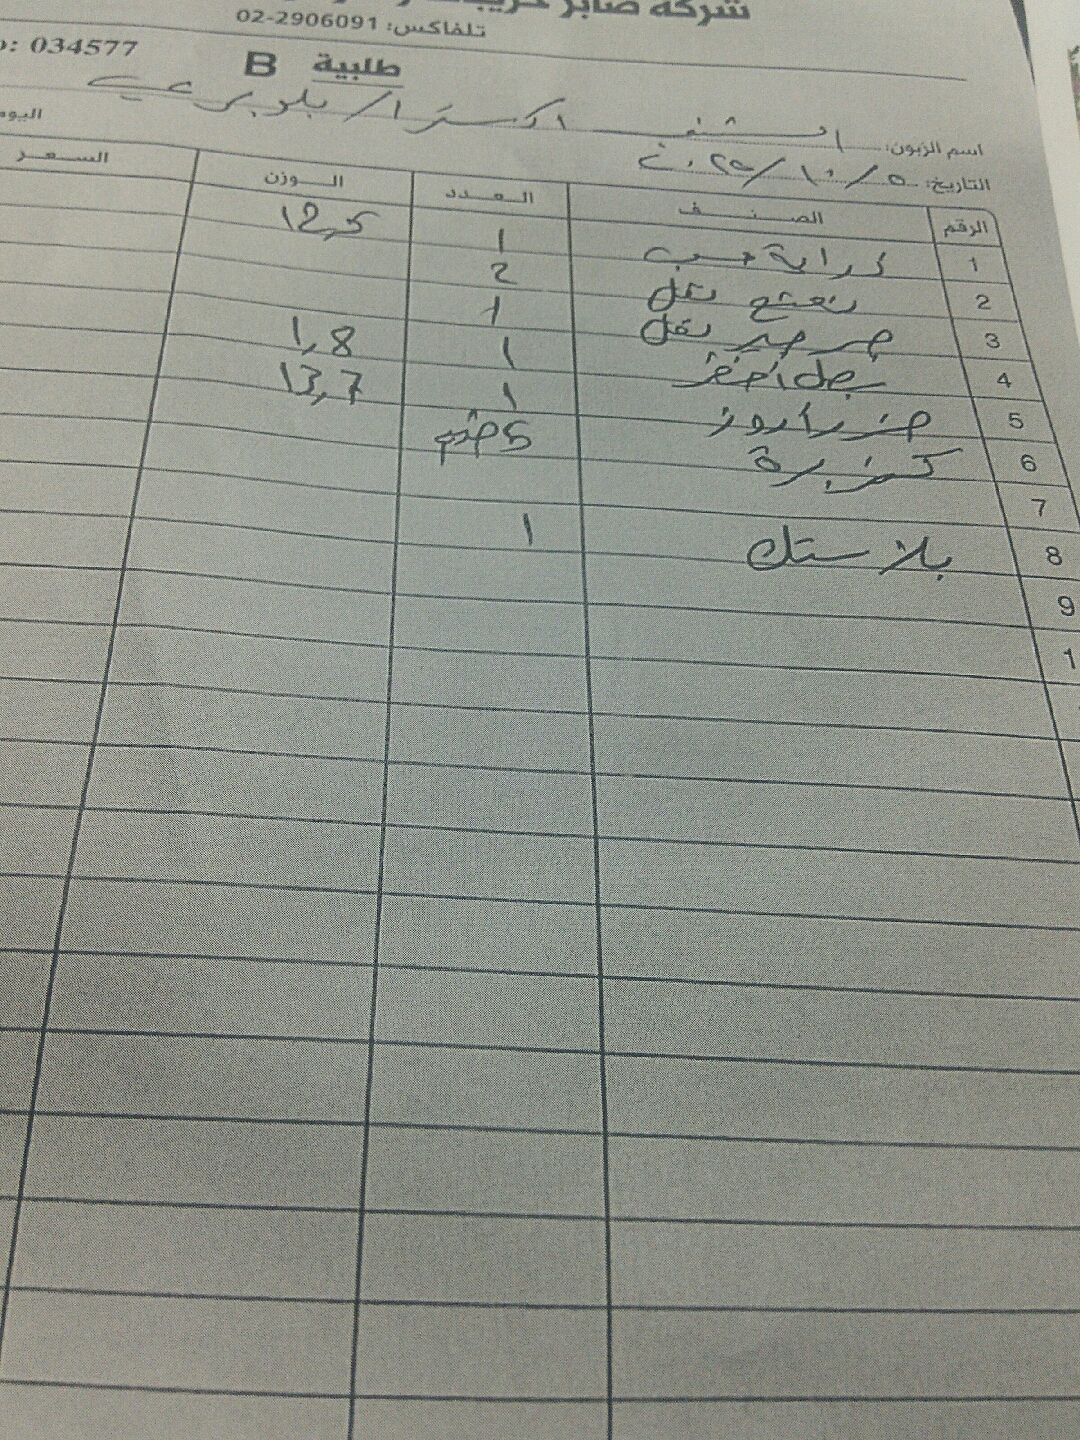 شركة صابر
تلفاكس: 02-2906091
: 034577
طلبية B
اسم الزبون: اكسترا / بلو برعي
التاريخ: ٢٠٢٥/١٠/٥
اليوم
الرقم الصنف العدد الوزن السعر
1 حب 1 12,5
2 نعنع نقل 2
3 جرجير نقل 1
4 بصل أخضر 1 1,8
5 1 13,7
6 كزبرة 5
7
8 بلاستك 1
9
1